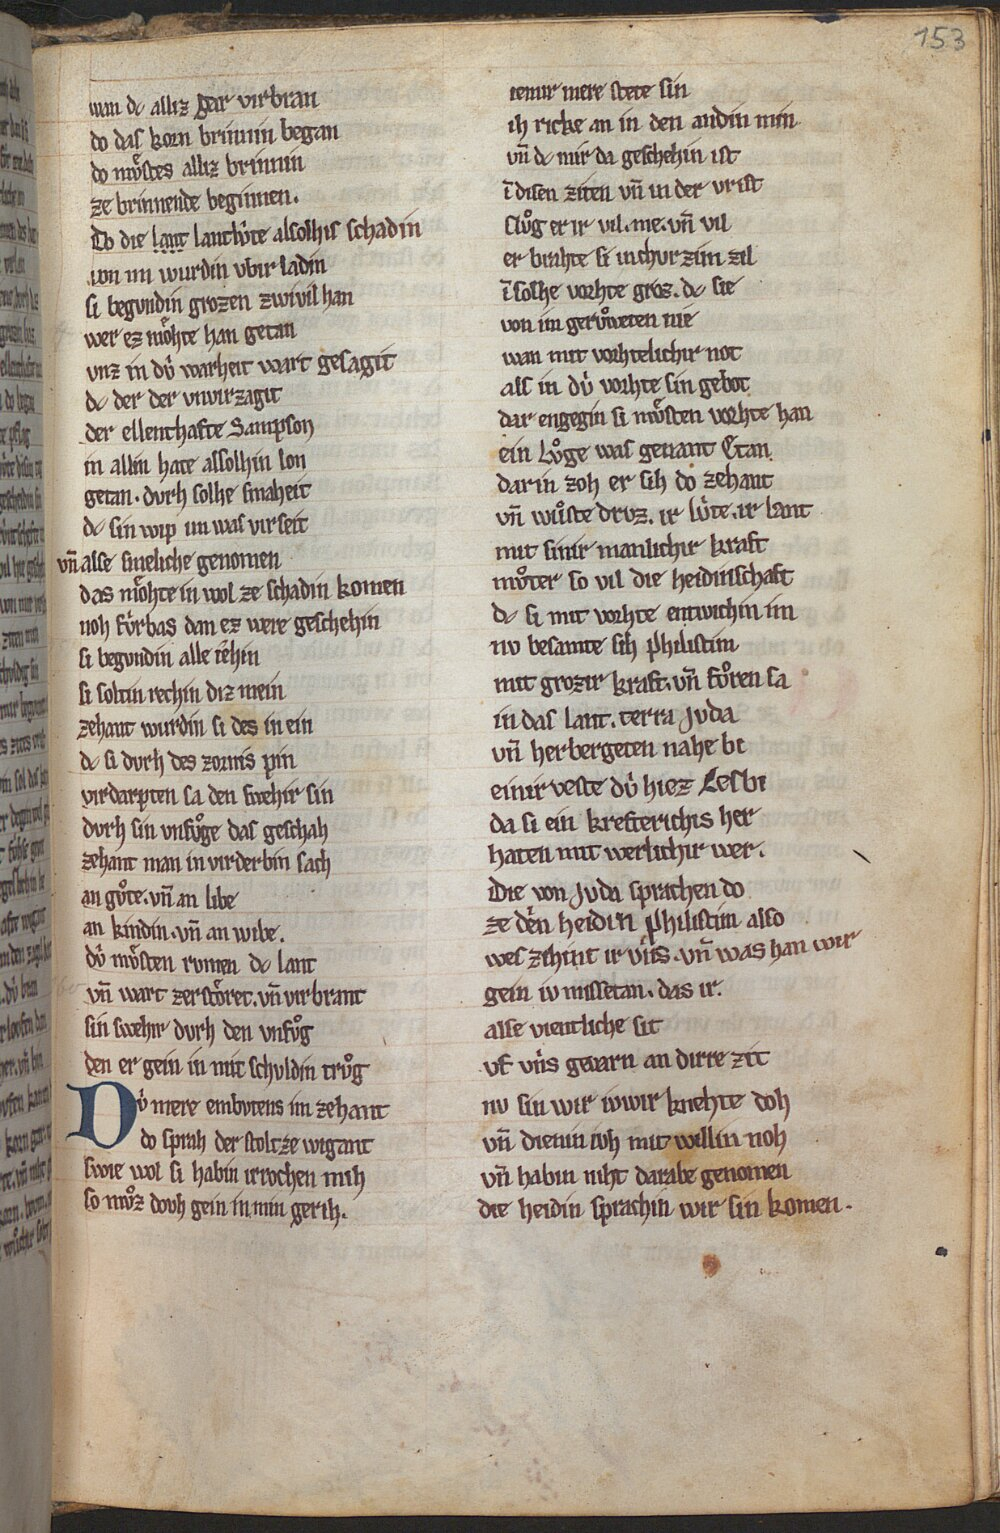 153
wan dc alliz gar virbran
do das korn brinnin began
do mv̊stes alliz brinnin
ze brinnende beginnen.
Do die lant lantlv̂te alsolhis schadin
von im wurdin vbir ladin
si begvndin grozen zwivil han
wer ez mo̊hte han getan
vnz in dv̂ warheit wart gesagit
dc der der vnvirzagit
der ellenthafte Sampson
in allin hate assolhin lon
getan. dvrh solhe smaheit
dc sin wip im was virseit
vn̄ alse smeliche genomen
das mo̊hte in wol ze schadin komen
noh fv̊rbas dan ez were geschehin
si begvndin alle iehin
si soltin rechin diz mein
zehant wurdin si des in ein
dc si dvrh des zornis pin
virdarpten sa den swehir sin
dvrh sin vnfv̊ge das geschah
zehant man in virderbin sach
an gv̊te. vn̄ an libe
an kindin. vn̄ an wibe.
dv̂ mv̊sten rvmen dc lant
vn̄ wart zerstȯret. vn̄ virbrant
sin swehir dvrh den vnfv̊g
den er gein in mit schvldin trv̊g
Dv̂ mere embvtens im zehant
do sprah der stoltze wigant
swie wol si habin irrochen mih
so mv̊z dovh gein in min gerih.
iemir mere stete sin
ih ricke an in den andin min
vn̄ dc mir da geschehin ist
ī disen ziten vn̄ in der vrist
slv̊g er ir vil. me. vn̄ vil
er brahte si in churzim zil
ī solhe vorhte groz. dc sie
von im gerv̊weten nie
wan mit vorhtelichir not
als in dv̂ vorhte sin gebot
dar engegin si mv̊sten vorhte han
ein lv̊ge was genant Etan.
darin zoh er sih do zehant
vn̄ wv̊ste drvz. ir lv̂te. ir lant
mit sinir manlichir kraft
mv̊ter so vil die heidinschaft
dc si mit vorhte entwichin im
nv besamte sih philistim
mit grozir kraft. vn̄ fv̊ren sa
in das lant. terra Jvda
vn̄ herbergeten nahe bi
einir veste dv̂ hiez Lesbi
da si ein krefterichis her
haten mit werlichir wer.
Die von Jvda sprachen do
ze den heidin philistim also
wes zihint ir vns. vn̄ was han wir
gein iv missetan. das ir.
alse vientliche sit
vf vns gevarn an dirre zit
nv sin wir iwir knehte doh
vn̄ dienin ivh mit willin noh
vn̄ habin niht darabe genomen
die heidin sprachin wir sin komen.